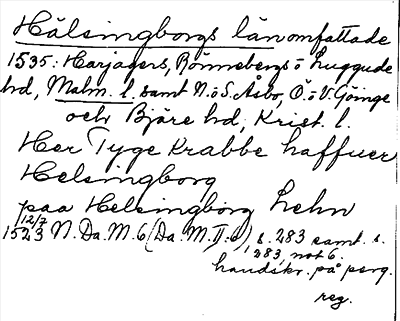 Hälsingborgs län omfattade
1535: Harjagers, Rönnebergs o Luggude
hd, Malm. l. samt N. o S. Åsbo, Ö. o V. Göinge
och Bjäre hd, Krist. l.
Her Tyge Krabbe haffuer
Helsingborg
paa Helsingborg Lehn
12/7
1523 N. Da. M. 6 (Da. M. II. 6), s. 283 samt s.
283, not 6.
handskr. på perg.
reg.